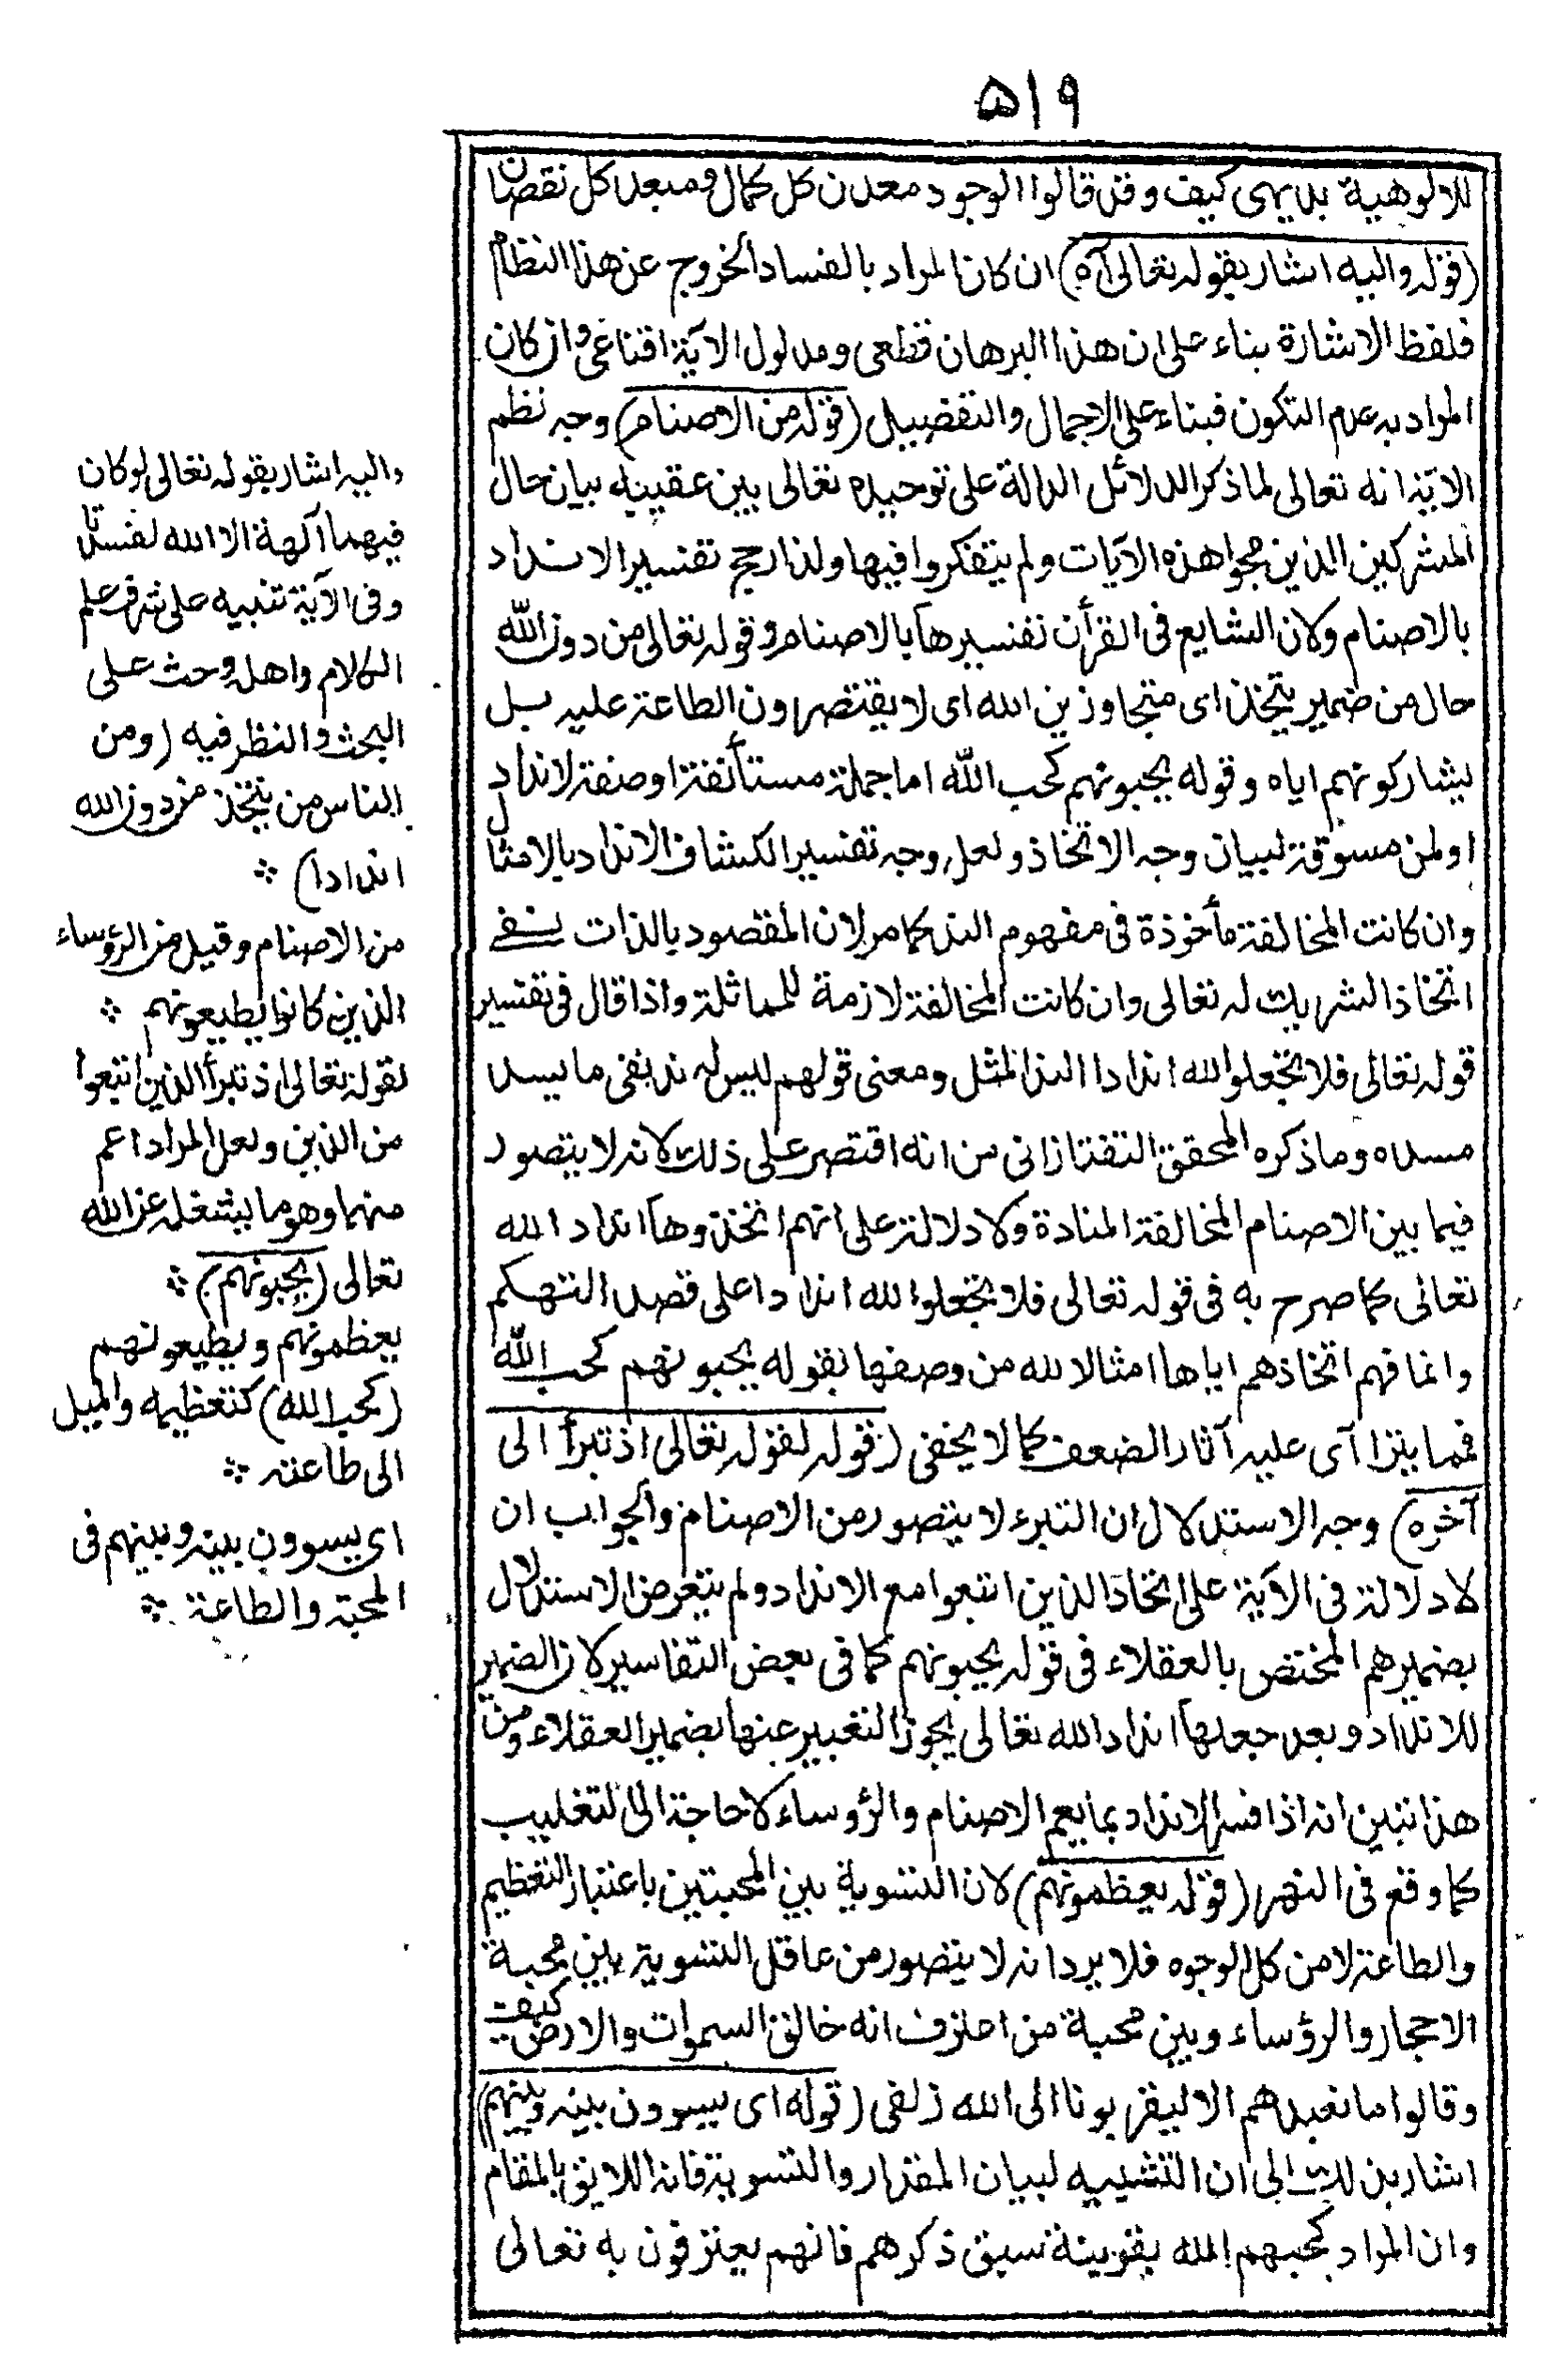 ۵۱۹
للالوهية بديهى كيف وقد قالوا الوجود معدن كل كمال ومبعد كل نقصان
(قوله واليه اشار بقوله تعالى آه) ان كان المراد بالفساد الخروج عن هذا النظام
فلفظ الاشارة بناء على ان هذا البرهان قطعى ومدلول الآية اقناعى وان كان
المراد به عدم التكون فبناء على الاجمال والتفصيل (قوله من الاصنام) وجه نظم
الآية انه تعالى لما ذكر الدلائل الدالة على توحيده تعالى بين عقيبه بيان حال
المشركين الذين مجوا هذه الآيات ولم يتفكروا فيها ولذا رجح تفسير الانداد
بالاصنام ولان الشايع فى القرأن تفسيرها بالاصنام وقوله تعالى من دون الله
حال من ضمير يتخذ اى متجاوزين الله اى لا يقتصرون الطاعة عليه بل
يشاركونهم اياه وقوله يحبونهم كحب الله اما جملة مستأنفة اوصفة لانداد
اولمن مسوقة لبيان وجه الاتخاذ ولعل وجه تفسير الكشاف الانداد بالامثال
وان كانت المخالفة مأخوذة فى مفهوم الند كما مر لان المقصود بالذات نفى
اتخاذ الشريك له تعالى وان كانت المخالفة لازمة للمماثلة واذا قال فى تفسير
قوله تعالى فلا تجعلوا لله اندادا الند المثل ومعنى قولهم ليس له ند نفى ما يسد
مسده وما ذكره المحقق التفتازانى من انه اقتصر على ذلك لانه لا يتصور
فيما بين الاصنام المخالفة المنادة ولا دلالة على انهم اتخذوها انداد الله
تعالى كما صرح به فى قوله تعالى فلا تجعلوا لله اندادا على قصد التهكم
وانما فهم اتخاذهم اياها امثالا لله من وصفها بقوله يحبونهم كحب الله
فمما يتراآى عليه آثار الضعف كما لا يخفى (قوله لقوله تعالى اذ تبرأ الى
آخره) وجه الاستدلال ان التبرء لا يتصور من الاصنام والجواب ان
لا دلالة فى الآية على اتحاد الذين اتبعوا مع الانداد ولم يتعرض الاستدلال
بضميرهم المختص بالعقلاء فى قوله يحبونهم كما فى بعض التفاسير لان الضمير
للانداد وبعد جعلها انداد الله تعالى يجوز التعبير عنها بضمير العقلاء ومن
هذا تبين انه اذا فسر الانداد بما يعم الاصنام والرؤساء لا حاجة الى التغليب
كما وقع فى النهر (قوله يعظمونهم) لان التسوية بين المحبتين باعتبار التعظيم
والطاعة لا من كل الوجوه فلا يرد انه لا يتصور من عاقل التسوية بين محبة
الاحجار والرؤساء وبين محبة من اعترف انه خالق السموات والارض كيف
وقالوا ما نعبدهم الا ليقربونا الى الله زلفى (قوله اى يسوون بينه وبينهم)
اشار بذلك الى ان التشبيه لبيان المقدار والتسوية فانه اللايق بالمقام
وان المراد كحبهم الله بقرينة سبق ذكرهم فانهم يعترفون به تعالى
واليه اشار بقوله تعالى لو كان
فيهما آلهة الا الله لفسدتا
وفى الآية تنبيه على شرف علم
الكلام واهله وحث على
البحث والنظر فيه (ومن
الناس من يتخذ من دون الله
اندادا) ؞
من الاصنام وقيل من الرؤساء
الذين كانوا يطيعونهم ؞
لقوله تعالى اذ تبرأ الذين اتبعوا
من الذين ولعل المراد اعم
منهما وهو ما يشغله عن الله
تعالى (يحبونهم) ؞
يعظمونهم ويطيعونهم
(كحب الله) كتعظيمه والميل
الى طاعته ؞
اى يسوون بينه وبينهم فى
المحبة والطاعة ؞